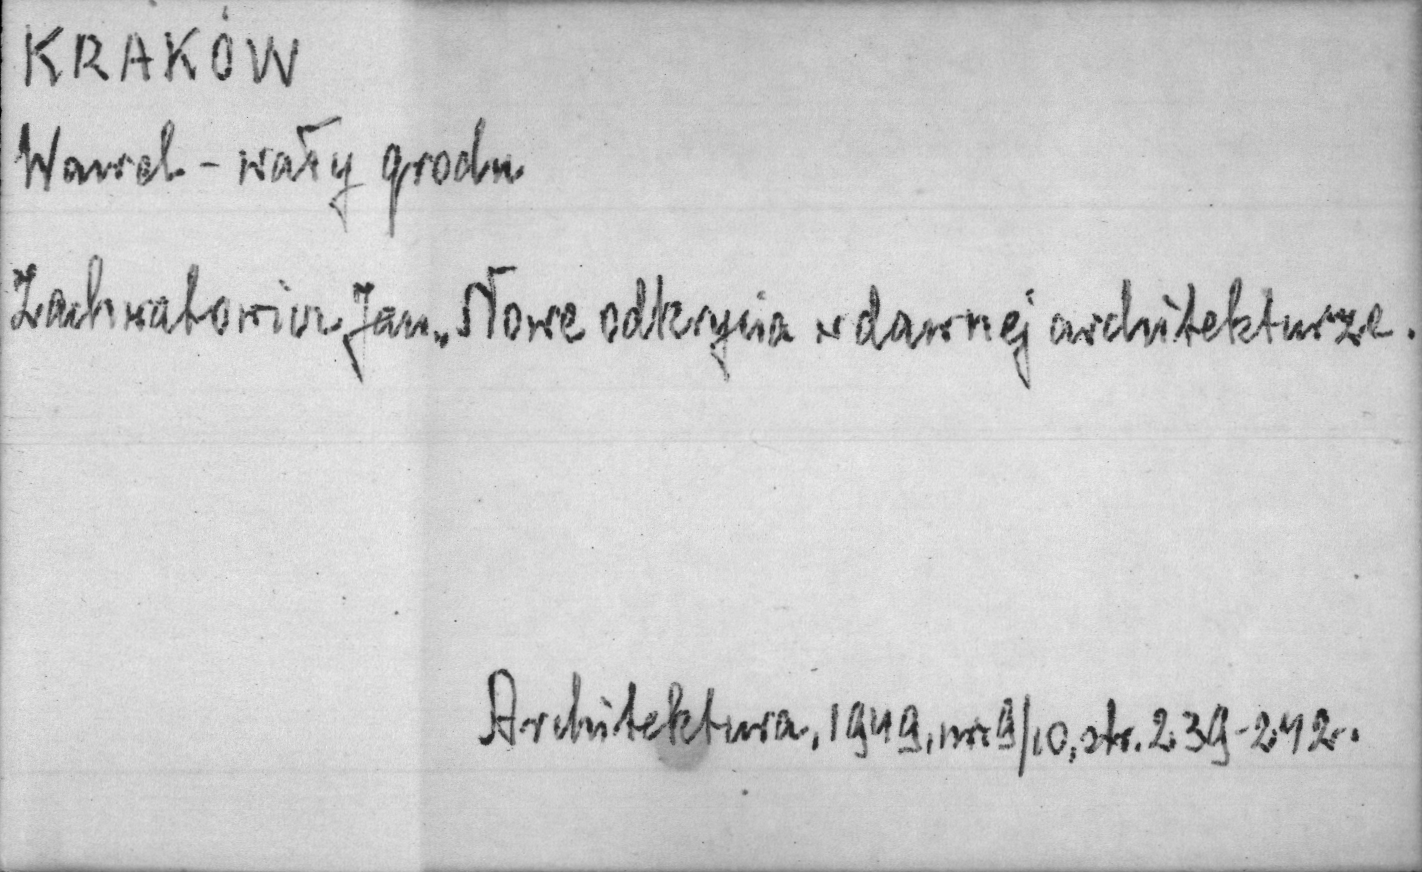 KRAKÓW
Wawel - wały grodu
Zachwatowicz Jan, Nowe odkrycia w dawnej architekturze.
Architektura, 1949, nr 9/10, str. 239-242.